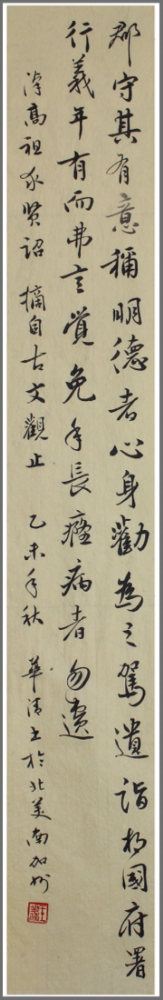 郡守其有意稱明德者心身勸為之駕遣詣相國府署
行義年有而弗言覺免年長癃病者勿遣
漢高祖求賢詔 摘自古文觀止 乙未年秋 華清書於北美南加州